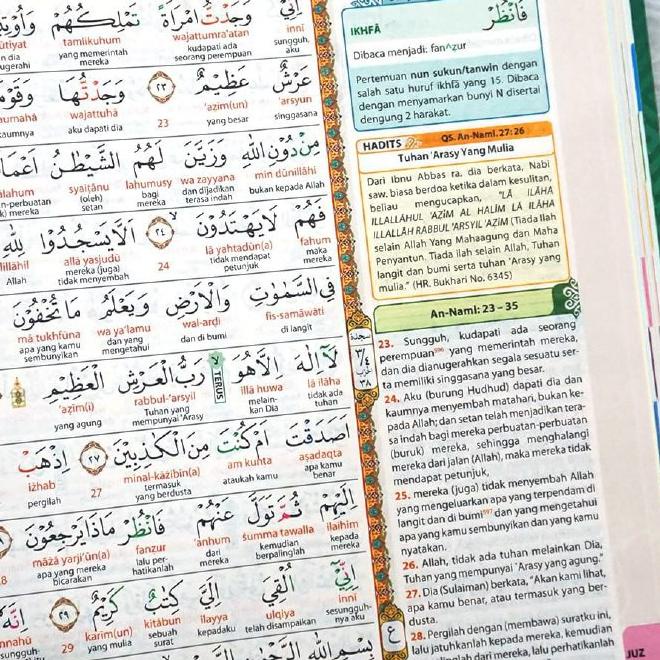 اِنِّيْ وَجَدْتُّ امْرَاَةً تَمْلِكُهُمْ
innī wajattumra'atan tamlikuhum
sungguh, aku kudapati ada seorang perempuan yang memerintah mereka
عَرْشٌ عَظِيْمٌ ٢٣ وَجَدْتُّهَا
'arsyun 'aẓīm(un) 23 wajattuhā
singgasana yang besar aku dapati dia
مِنْ دُوْنِ اللّٰهِ وَزَيَّنَ لَهُمُ الشَّيْطٰنُ
min dūnillāhi wa zayyana lahumusy syaiṭānu
bukan kepada Allah dan dijadikan terasa indah bagi mereka (oleh) setan
فَهُمْ لَا يَهْتَدُوْنَ ٢٤ اَلَّا يَسْجُدُوْا لِلّٰهِ
fahum lā yahtadūn(a) 24 allā yasjudū lillāhil
maka mereka tidak mendapat petunjuk mereka (juga) tidak menyembah Allah
فِى السَّمٰوٰتِ وَالْاَرْضِ وَيَعْلَمُ مَا تُخْفُوْنَ
fis-samāwāti wal-arḍi wa ya'lamu mā tukhfūna
di langit dan di bumi dan yang mengetahui apa yang kamu sembunyikan
لَآ اِلٰهَ اِلَّا هُوَ رَبُّ الْعَرْشِ الْعَظِيْمِ
TERUS
lā ilāha illā huwa rabbul-'arsyil 'aẓīm(i)
tidak ada tuhan melainkan Dia Tuhan yang mempunyai 'Arasy yang agung
اَصَدَقْتَ اَمْ كُنْتَ مِنَ الْكٰذِبِيْنَ ٢٧ اِذْهَبْ
aṣadaqta am kunta minal-kāżibīn(a) 27 iżhab
apa kamu benar ataukah kamu termasuk yang berdusta pergilah
اِلَيْهِمْ ثُمَّ تَوَلَّ عَنْهُمْ فَانْظُرْ مَاذَا يَرْجِعُوْنَ
ilaihim ṡumma tawalla 'anhum fanẓur māżā yarji'ūn(a)
kepada mereka kemudian berpalinglah dari mereka lalu perhatikanlah apa yang mereka bicarakan
اِنِّيْٓ اُلْقِيَ اِلَيَّ كِتٰبٌ كَرِيْمٌ ٢٩
innī ulqiya ilayya kitābun karīm(un) 29
sesungguhnya aku telah disampaikan kepadaku sebuah surat yang mulia
بِسْمِ اللّٰهِ
فَانْظُرْ
IKHFĀ
Dibaca menjadi: fan^zur
Pertemuan nun sukun/tanwin dengan
salah satu huruf ikhfā yang 15. Dibaca
dengan menyamarkan bunyi N disertai
dengung 2 harakat.
HADITS QS. An-Naml. 27: 26
Tuhan 'Arasy Yang Mulia
Dari Ibnu Abbas ra. dia berkata, Nabi
saw. biasa berdoa ketika dalam kesulitan,
beliau mengucapkan, "LĀ ILĀHA
ILLALLĀHUL 'AẒĪM AL HALĪM LĀ ILĀHA
ILLALLĀH RABBUL 'ARSYIL 'AẒĪM (Tiada Ilah
selain Allah Yang Mahaagung dan Maha
Penyantun. Tiada ilah selain Allah, Tuhan
langit dan bumi serta tuhan 'Arasy yang
mulia." (HR. Bukhari No. 6345)
An-Naml: 23 – 35
23. Sungguh, kudapati ada seorang
perempuan⁵⁹⁶ yang memerintah mereka,
dan dia dianugerahkan segala sesuatu ser-
ta memiliki singgasana yang besar.
24. Aku (burung Hudhud) dapati dia dan
kaumnya menyembah matahari, bukan ke-
pada Allah; dan setan telah menjadikan tera-
sa indah bagi mereka perbuatan-perbuatan
(buruk) mereka, sehingga menghalangi
mereka dari jalan (Allah), maka mereka tidak
mendapat petunjuk,
25. mereka (juga) tidak menyembah Allah
yang mengeluarkan apa yang terpendam di
langit dan di bumi⁵⁹⁷ dan yang mengetahui
apa yang kamu sembunyikan dan yang kamu
nyatakan.
26. Allah, tidak ada tuhan melainkan Dia,
Tuhan yang mempunyai 'Arasy yang agung."
27. Dia (Sulaiman) berkata, "Akan kami lihat,
apa kamu benar, atau termasuk yang ber-
dusta.
28. Pergilah dengan (membawa) suratku ini,
lalu jatuhkanlah kepada mereka, kemudian
dari mereka, lalu perhatikanlah
JUZ